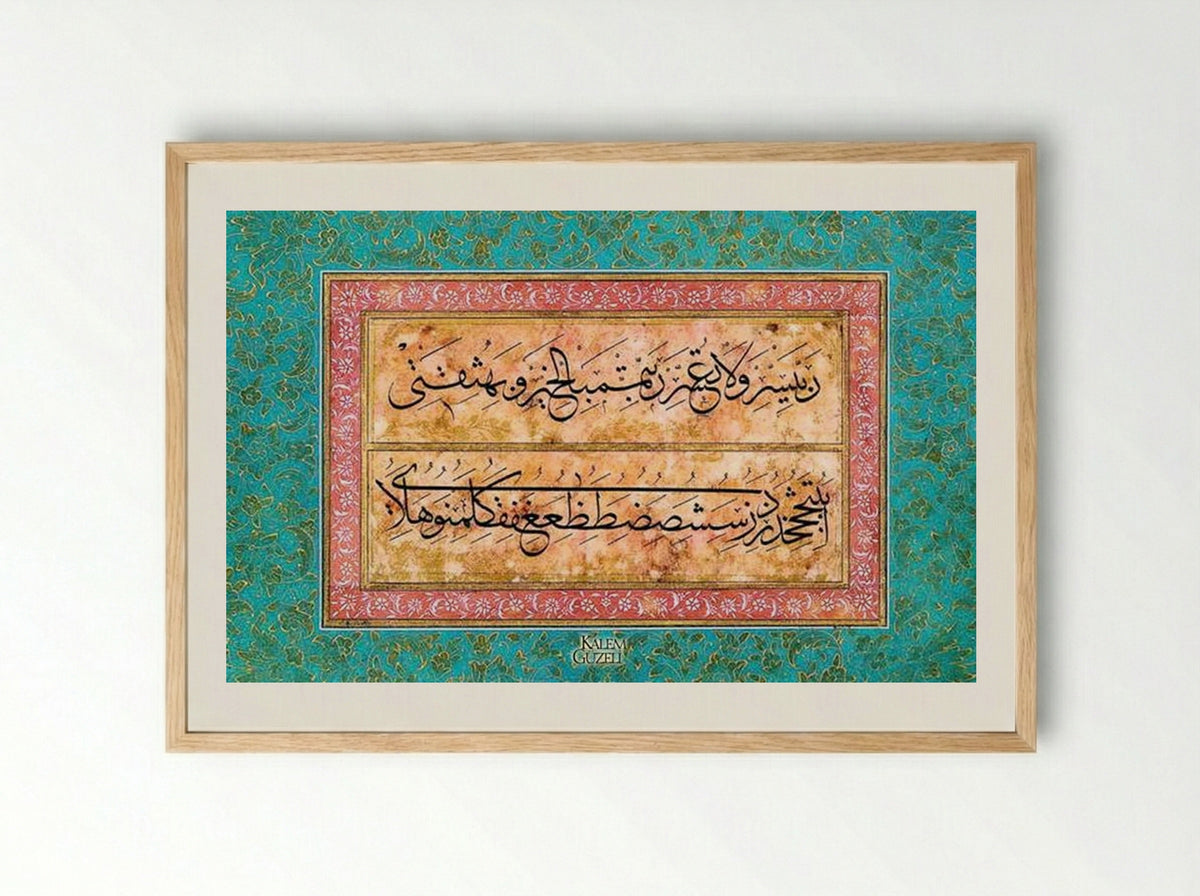 رَبِّ يَسِّرْ وَلَا تُعَسِّرْ رَبِّ تَمِّمْ بِالْخَيْرِ وَبِهِ ثِقَتِي
ا ب ت ث ج ح خ د ذ ر ز س ش ص ض ط ظ ع غ ف ق ك ل م ن و ه لا ي
KALEM
GÜZELİ